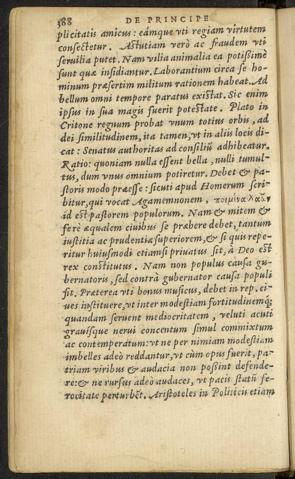 388 DE PRINCIPE
plicitatis amicus: eámque vti regiam virtutem
consectetur. Astutiam verò ac fraudem vti
seruilia putet. Nam vilia animalia ea potißimè
sunt quæ insidiantur. Laborantium circa se ho-
minum præsertim militum rationem habeat. Ad
bellum omni tempore paratus existat. Sic enim
ipsus in sua magis fuerit potestate. Plato in
Critone regnum probat vnum totius orbis, ad
dei similitudinem, ita tamen, vt in aliis locis di-
cat: Senatus authoritas ad consiliũ adhibeatur.
Ratio: quoniam nulla essent bella, nulli tumul-
tus, dum vnus omnium potiretur. Debet & pa-
storis modo præesse: sicuti apud Homerum scri-
bitur, qui vocat Agamemnonem, ποιμένα λαῶν,
id est pastorem populorum. Nam & mitem &
ferè æqualem ciuibus se præbere debet, tantum
iustitia ac prudentia superiorem, & si quis repe-
ritur huiusmodi etiamsi priuatus sit, à Deo est
rex constitutus. Nam non populus causa gu-
bernatoris, sed contrà gubernator causa populi
fit. Præterea vti bonus musicus, debet in rep. ci-
ues instituere, vt inter modestiam fortitudinemq́;
quandam seruent mediocritatem, veluti acuti
grauísque nerui concentum simul commixtum
ac contemperatum: vt ne per nimiam modestiam
imbelles adeò reddantur, vt cùm opus fuerit, pa-
triam viribus & audacia non poßint defende-
re: & ne rursus adeò audaces, vt pacis statũ fe-
rocitate perturbẽt. Aristoteles in Politicis etiam